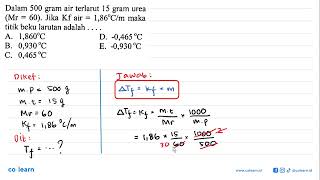 Dalam 500 gram air terlarut 15 gram urea
(Mr = 60). Jika Kf air = 1,86°C/m maka
titik beku larutan adalah . . . .
A. 1,860°C
B. 0,930°C
C. 0,465°C
D. -0,465°C
E. -0,930°C
Diket:
m.p = 500 g
m.t = 15 g
Mr = 60
Kf = 1,86 °C/m
Dit:
Tf = ... ?
Jawab:
ΔTf = Kf × m
ΔTf = Kf × m.t/Mr × 1000/m.p
= 1,86 × 15/60 × 1000/500
30
2
co learn
www.colearn.id
@colearn.id